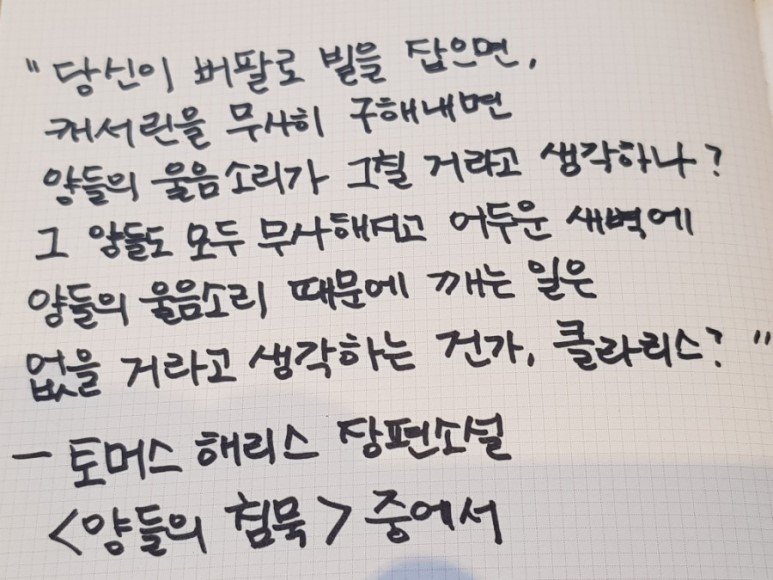 "당신이 버팔로 빌을 잡으면,
캐서린을 무사히 구해내면
양들의 울음소리가 그칠 거라고 생각하나?
그 양들도 모두 무사해지고 어두운 새벽에
양들의 울음소리 때문에 깨는 일은
없을 거라고 생각하는 건가, 클라리스?"
- 토머스 해리스 장편소설
<양들의 침묵> 중에서